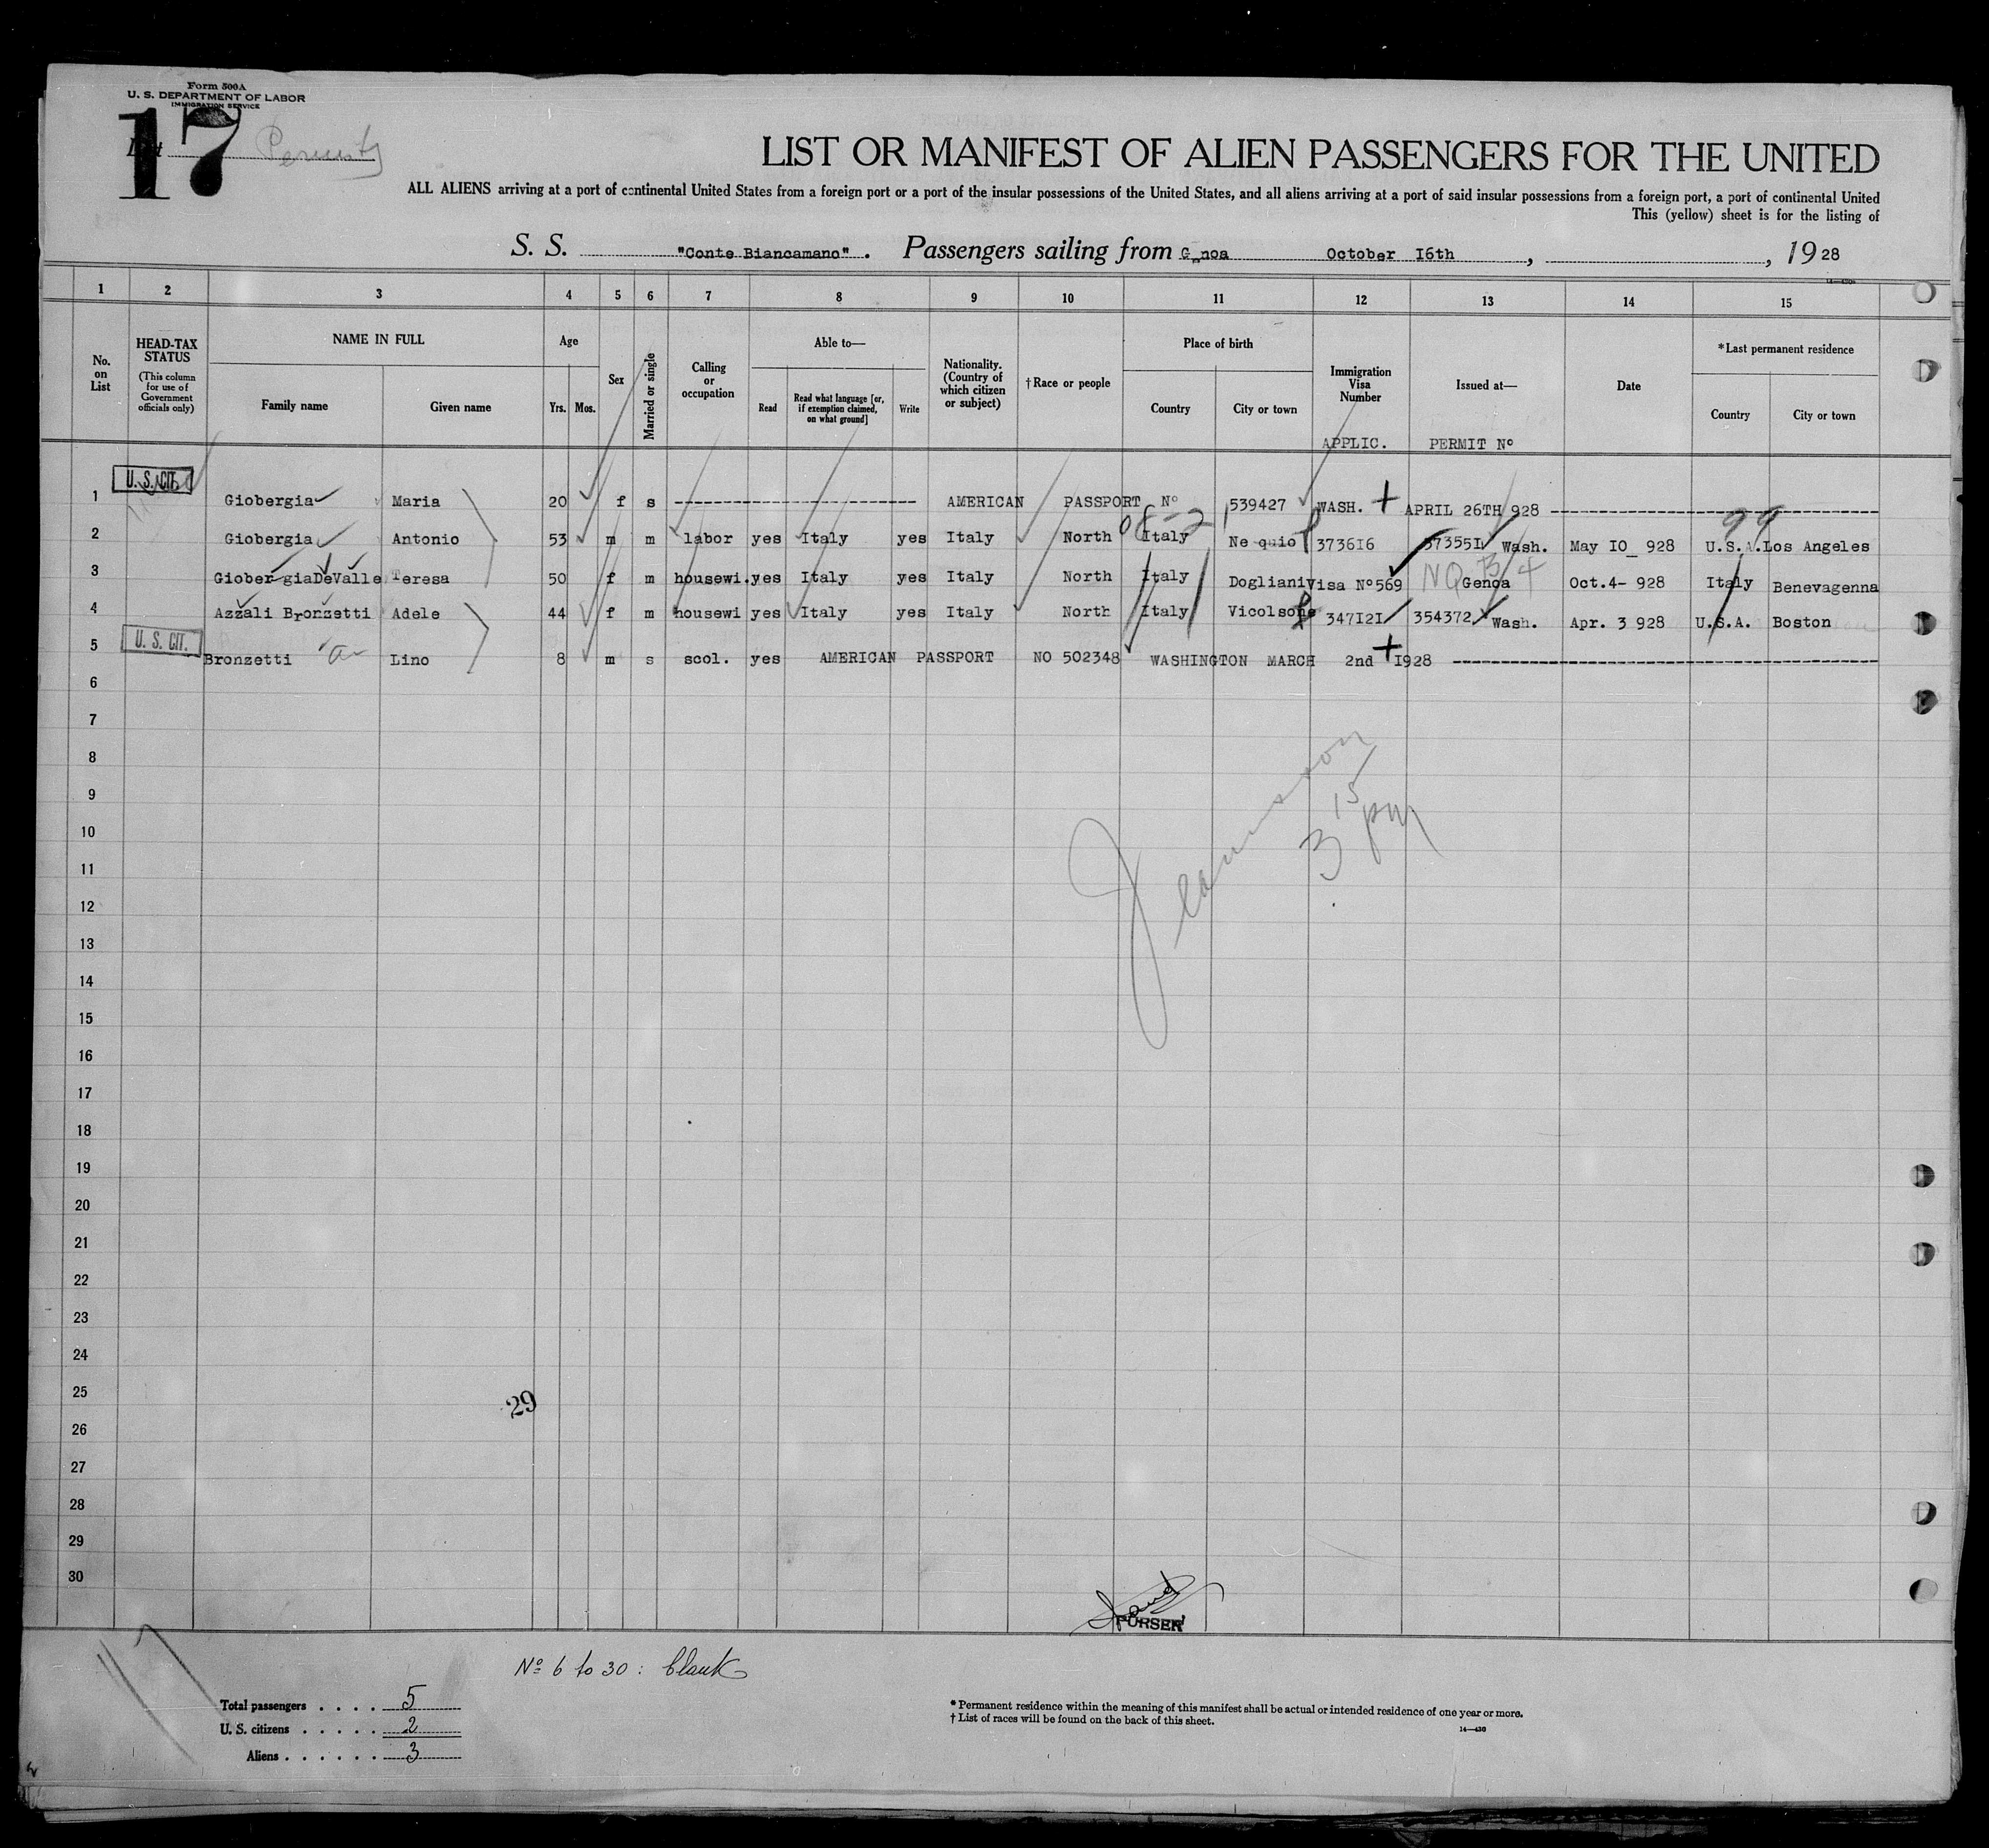 Form 500A
U. S. DEPARTMENT OF LABOR
IMMIGRATION SERVICE
17
List
LIST OR MANIFEST OF ALIEN PASSENGERS FOR THE UNITED
ALL ALIENS arriving at a port of continental United States from a foreign port or a port of the insular possessions of the United States, and all aliens arriving at a port of said insular possessions from a foreign port, a port of continental United
This (yellow) sheet is for the listing of
S. S. "Conte Biancamano". Passengers sailing from G noa October I6th , , 19 28
1 2 3 4 5 6 7 8 9 10 11 12 13 14 15
No. on List
HEAD-TAX STATUS (This column for use of Government officials only)
NAME IN FULL
Family name Given name
Age
Yrs. Mos.
Sex
Married or single
Calling or occupation
Able to—
Read Read what language [or, if exemption claimed, on what ground] Write
Nationality. (Country of which citizen or subject)
† Race or people
Place of birth
Country City or town
Immigration Visa Number
Issued at—
Date
* Last permanent residence
Country City or town
APPLIC. PERMIT Nº
U. S. CIT.
1 Giobergia Maria 20 f s AMERICAN PASSPORT Nº 539427 WASH. APRIL 26TH 928
2 Giobergia Antonio 53 m m labor yes Italy yes Italy North Italy Ne quio 3736I6 37355I Wash. May IO_ 928 U.S.A. Los Angeles
99
3 Giober giaDeValle Teresa 50 f m housewi. yes Italy yes Italy North Italy Dogliani visa Nº569 Genoa Oct.4- 928 Italy Benevagenna
NQ B 4
4 Azzali Bronzetti Adele 44 f m housewi yes Italy yes Italy North Italy Vicolsone 347I2I 354372 Wash. Apr. 3 928 U.S.A. Boston
U. S. CIT.
5 Bronzetti Lino 8 m s scol. yes AMERICAN PASSPORT NO 502348 WASHINGTON MARCH 2nd I928
6
7
8
9
10
11
12
13
14
15
16
17
18
19
20
21
22
23
24
25
26
27
28
29
30
3 15 pm
29
PURSER
Nº 6 to 30 : blank
Total passengers . . . . 5
U. S. citizens . . . . . 2
Aliens . . . . . . 3
* Permanent residence within the meaning of this manifest shall be actual or intended residence of one year or more.
† List of races will be found on the back of this sheet.
14—430